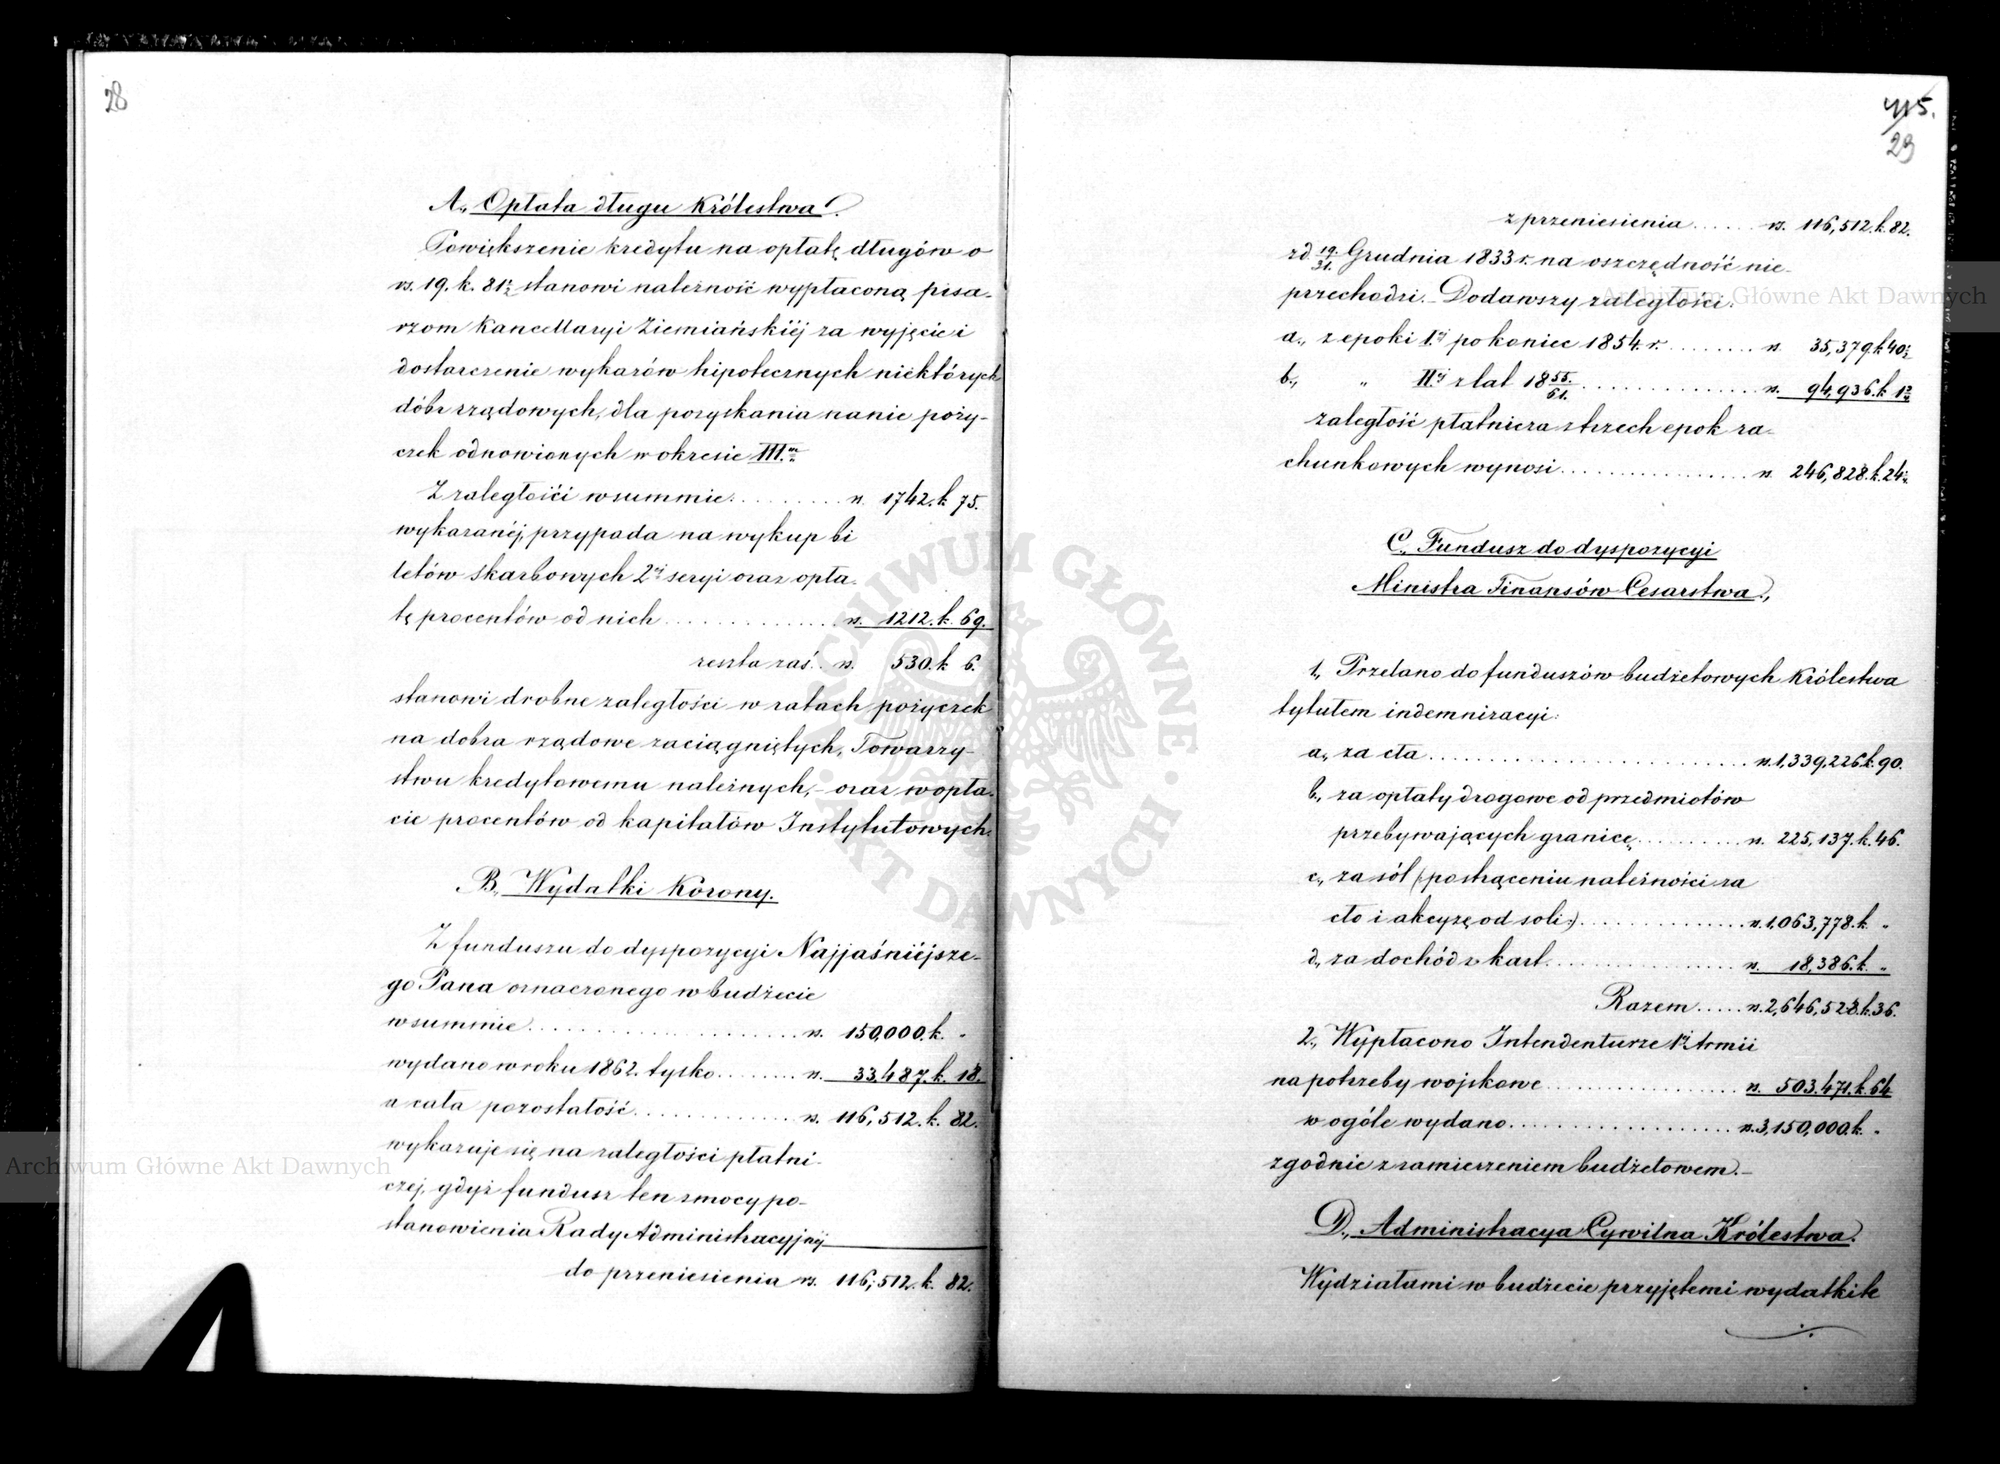 28
A., Opłata długu Królestwa.
Powiększenie kredytu na opłatę długów o
rs. 19. k. 81½ stanowi należność wypłaconą pisa-
rzom Kancellaryi Ziemiańskiéj za wyjęcie i
dostarczenie wykazów hipotecznych niektórych
dóbr rządowych, dla pozyskania na nie poży-
czek odnowionych w okresie III.m
Z zaległości w summie . . . . . . . . rs. 1742. k. 75.
wykazanéj, przypada na wykup bi
letów skarbowych 2éj seryi oraz opła-
tę procentów od nich . . . . . . . . . . . . . rs. 1212. k. 69.
reszta zaś . . rs. 530. k. 6.
stanowi drobne zaległości w ratach pożyczek
na dobra rządowe zaciągniętych, Towarzy-
stwu kredytowemu należnych, - oraz w opła-
cie procentów od kapitałów Instytutowych.
B., Wydatki Korony.
Z funduszu do dyspozycyi Najjaśniéjsze-
go Pana oznaczonego w budżecie
w summie . . . . . . . . . . . . . . . . . . . . rs. 150,000. k. "
wydano w roku 1862. tysko . . . . . . . . rs. 33,487. k. 18.
a cała pozostałość . . . . . . . . . . . . rs. 116,512. k. 82.
wykazuje się na zaległości płatni-
czej, gdyż fundusz ten z mocy po-
stanowienia Rady Administracyjnéj
do przeniesienia rs. 116,512. k. 82.
415.
29
z przeniesienia . . . . . . rs. 116,512. k. 82.
zd 19/31. Grudnia 1833 r. na oszczędność nie-
przechodzi. - Dodawszy zaległości:
a., z epoki I.éj po koniec 1854. r. . . . . . . . . rs. 35,379. k. 40½
b., " II.éj z lat 1855/61. . . . . . . . . . . . . . . rs. 94,936. k. 1½
zaległość płatnicza z trzech epok ra-
chunkowych wynosi . . . . . . . . . . . . . . . rs. 246,828. k. 24½
C., Fundusz do dyspozycyi
Ministra Finansów Cesarstwa.,
1., Przelano do funduszów budżetowych Królestwa
tytułem indemnizacyi:
a., za cła . . . . . . . . . . . . . . . . . . . . . . . . . . rs. 1,339,226. k. 90.
b., za opłaty drogowe od przedmiotów
przebywających granicę . . . . . . . . . . rs. 225,137. k. 46.
c., za sól (po strąceniu należności za
cło i akcyzę od soli:) . . . . . . . . . . . . . . rs. 1,063,778. k. "
d., za dochód z kart . . . . . . . . . . . . . . . . rs. 18,386. k. "
Razem . . . . . rs. 2,646,528. k. 36.
2., Wypłacono Intendenturze 1éj Armii
na potrzeby wojskowe . . . . . . . . . . . . . . . . rs. 503,471. k. 64.
w ogóle wydano . . . . . . . . . . . . . . . . . . rs. 3,150,000. k. "
zgodnie z zamierzeniem budżetowem. -
D., Administracya Cywilna Królestwa.
Wydziałami w budżecie przyjętemi wydatki te
Archiwum Główne Akt Dawnych
Archiwum Główne Akt Dawnych
ARCHIWUM GŁÓWNE
AKT DAWNYCH